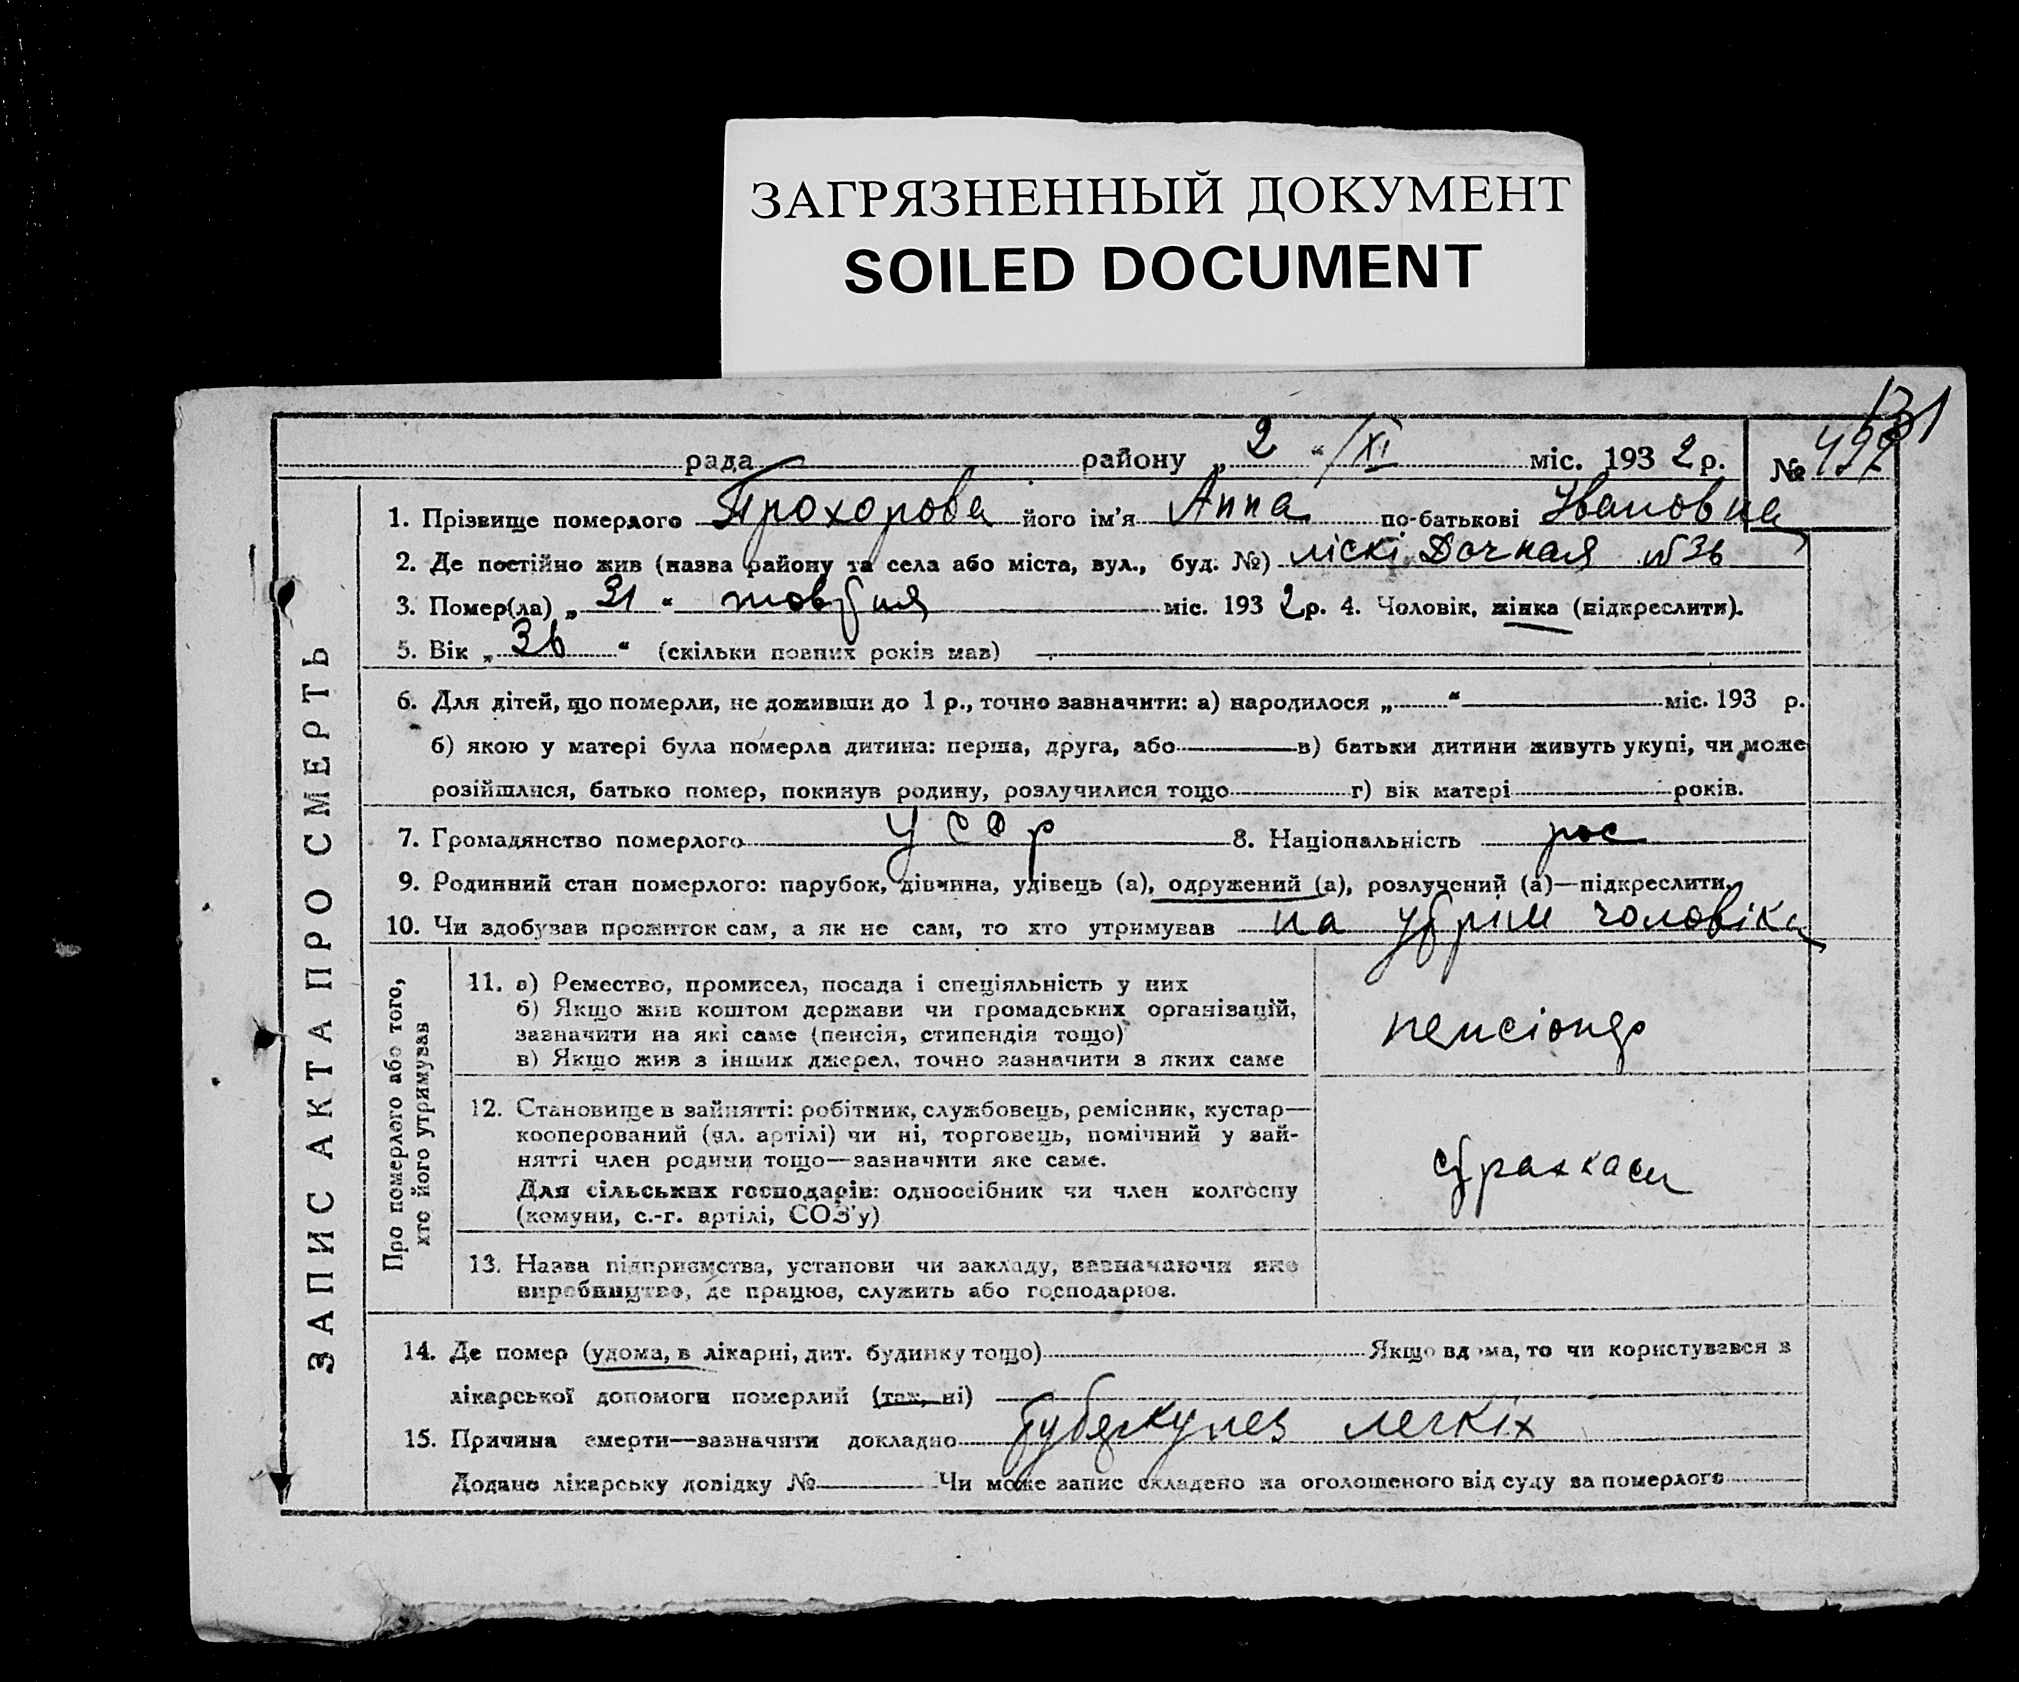 ЗАГРЯЗНЕННЫЙ ДОКУМЕНТ
SOILED DOCUMENT
131
рада района району „ 2 “ / XI міс. 193 2 р. № 497
1. Прізвище померлого Прохорова його ім’я Анна по-батькові Ивановна
2. Де постійно жив (назва району та села або міста, вул., буд. №) ліскі Дачная № 36
3. Помер(ла) „ 31 “ жовтня міс. 193 2 р. 4. Чоловік, жінка (підкреслити).
5. Вік „ 36 “ (скільки повних років мав)
6. Для дітей, що померли, не доживши до 1 р., точно зазначити: а) народилося „ “ міс. 193 р.
б) якою у матері була померла дитина: перша, друга, або в) батьки дитини живуть укупі, чи може
розійшлися, батько помер, покинув родину, розлучилися тощо г) вік матері років.
7. Громадянство померлого УСРР 8. Національність рос
9. Родинний стан померлого: парубок, дівчина, удівець (а), одружений (а), розлучений (а)—підкреслити.
10. Чи здобував прожиток сам, а як не сам, то хто утримував на утрім чоловіка
ЗАПИС АКТА ПРО СМЕРТЬ
Про померлого або того,
хто його утримував
11. а) Ремество, промисел, посада і спеціяльність у них
б) Якщо жив коштом держави чи громадських організацій,
зазначити на які саме (пенсія, стипендія тощо)
в) Якщо жив з інших джерел, точно зазначити з яких саме
пенсіонер
12. Становище в зайнятті: робітник, службовець, ремісник, кустар—
кооперований (чл. артілі) чи ні, торговець, помічний у зай-
нятті член родини тощо—зазначити яке саме.
Для сільських господарів: одноосібник чи член колгоспу
(комуни, с.-г. артілі, СОЗ’у)
страхкаси
13. Назва підприємства, установи чи закладу, зазначаючи яке
виробництво, де працює, служить або господарює.
14. Де помер (удома, в лікарні, дит. будинку тощо) Якщо вдома, то чи користувався з
лікарської допомоги померлий (так, ні)
15. Причина смерти—зазначити докладно Туберкулез легкіх
Додано лікарську довідку № Чи може запис складено на оголошеного від суду за померлого